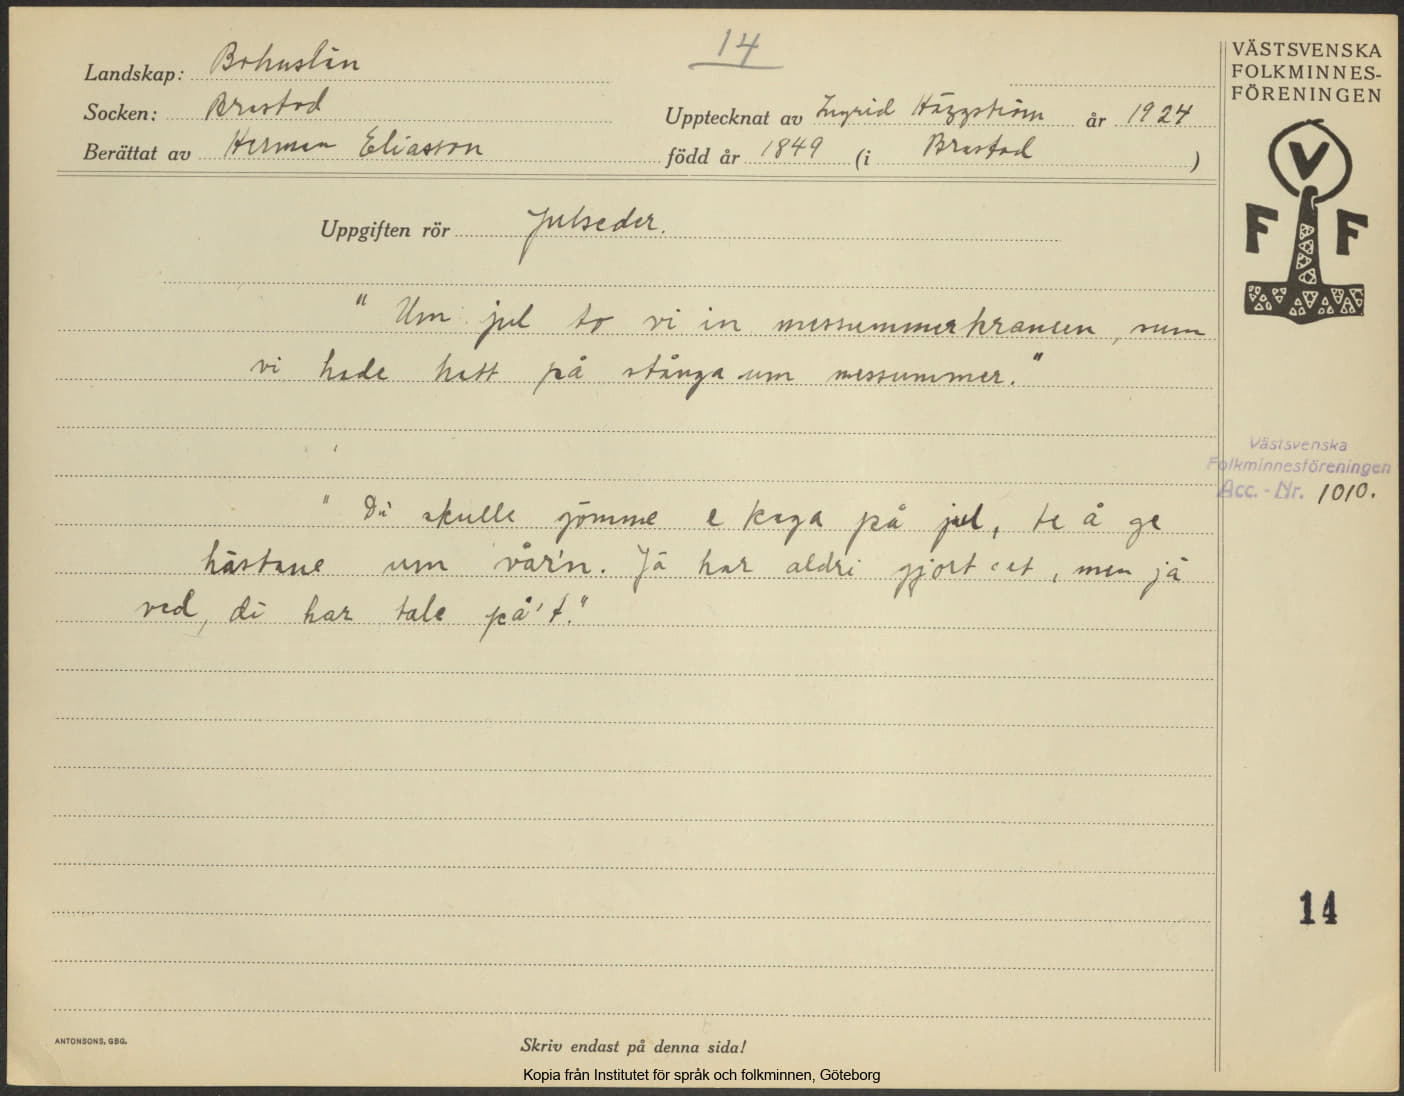 14
Landskap: Bohuslän
Socken: Brastad
Upptecknat av Ingrid Häggström år 1924
Berättat av Herman Eliasson
född år 1849 (i Brastad )
Uppgiften rör Julseder.
" Um jul to vi in messummerkransen, sum
vi hade hatt på stånga um messummer."
" Di skulle jömme e kaga på jul, te å ge
hästane um vår'n. Jä har aldri gjort et, men jä
ved, di har tale på't."
VÄSTSVENSKA
FOLKMINNES-
FÖRENINGEN
V
F F
Västsvenska
Folkminnesföreningen
Acc. - Nr. 1010.
14
ANTONSONS, GBG.
Skriv endast på denna sida!
Kopia från Institutet för språk och folkminnen, Göteborg